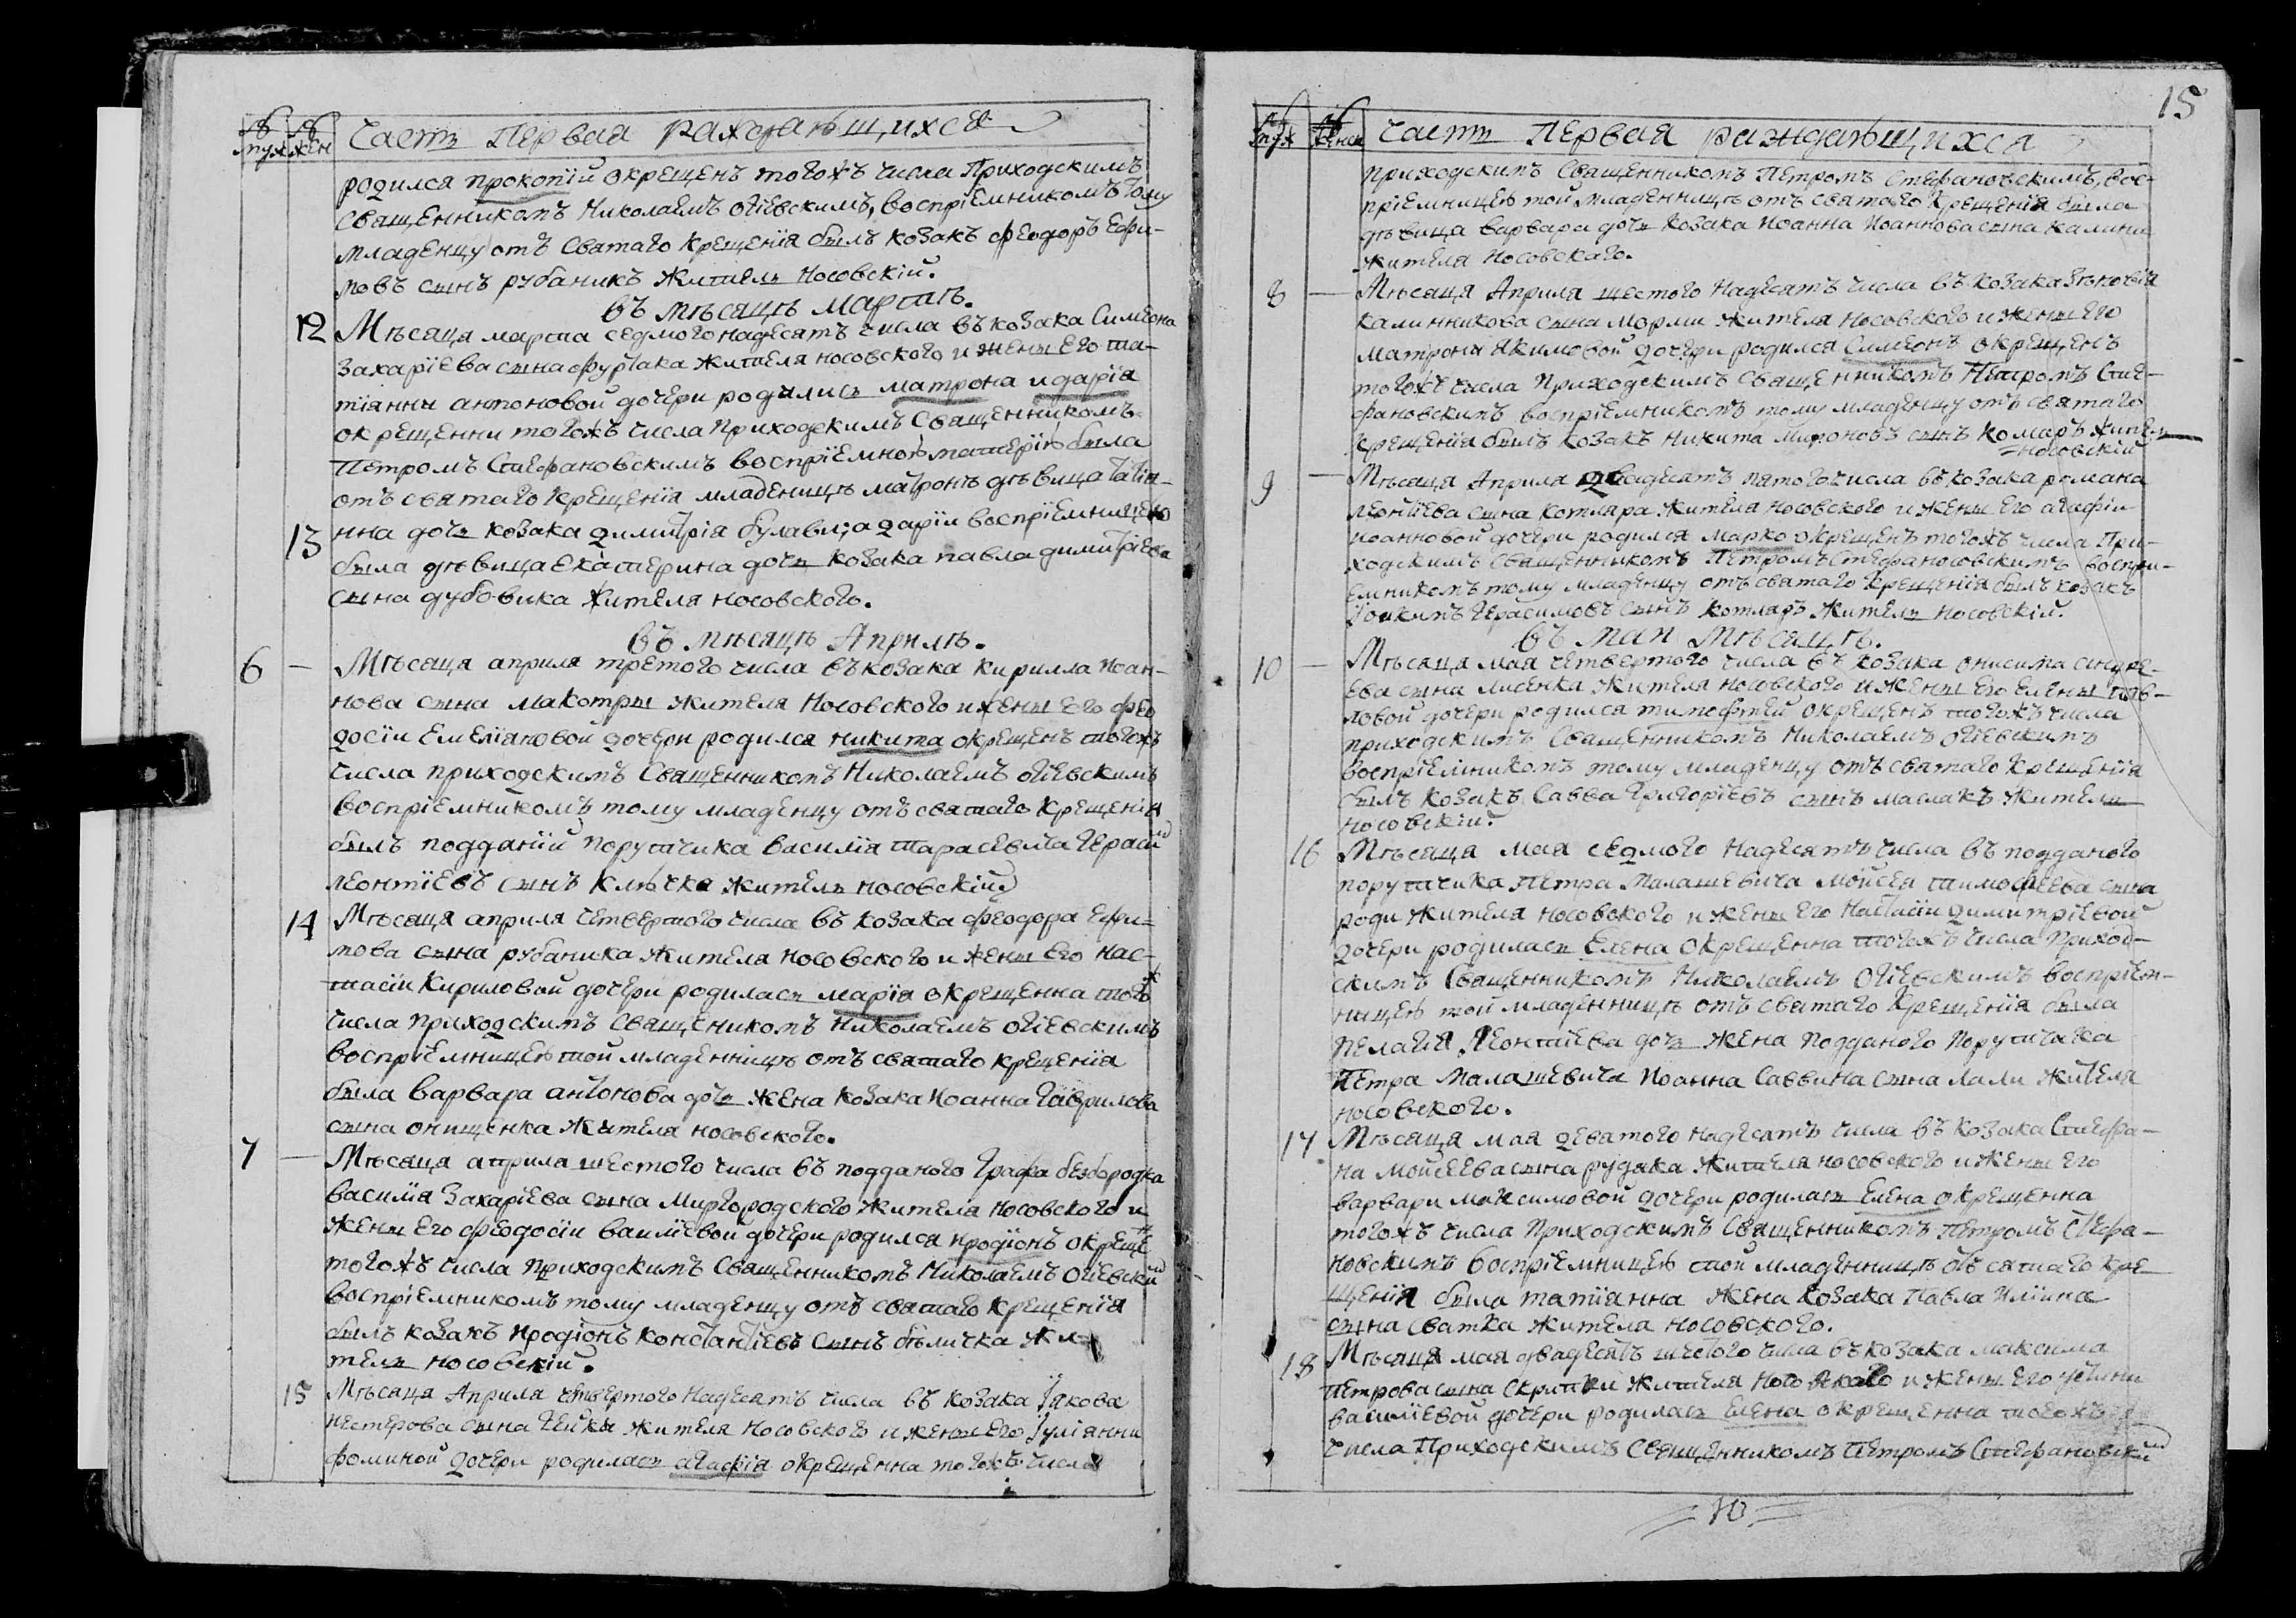 № муж № жен Часть Первая раждающихся
родился прокопій окрещенъ тогожъ числа Приходскимъ
священникомъ Николаемъ Огіевскимъ, воспріемникомъ тому
младенцу отъ Святаго Крещенія былъ козакъ феодоръ Ефи-
мовъ сынъ рубаникъ житель Носовскій.
въ мѣсяцѣ мартѣ.
12 Мѣсяца марта седмого надесять числа въ козака Симеона
Захаріева сына фурсака жителя носовского и жены его та-
тіянны антоновой дочери родились матрона и дарія
окрещенни тогожъ числа Приходскимъ Священникомъ
Петромъ Стефановскимъ воспріемною матерію была
отъ святаго крещенія младеницѣ матронѣ дѣвица Татія-
13 нна дочь козака димитрія булавы; а даріи воспріемницею
была дѣвица екатерина дочь козака павла димитріева
сына дубовика жителя носовского.
въ мѣсяцѣ Априлѣ.
6 — Мѣсяца априля третого числа въ козака кирилла Иоан-
нова сына макотры жителя Носовского и жены его фео
досіи Емеліяновой дочери родился никита окрещенъ тогожъ
числа приходскимъ Священникомъ Николаемъ Огіевскимъ
воспріемникомъ тому младенцу отъ святаго крещенія
былъ подданій порутчика василія тарасевича Герасим
леонтіевъ сынъ Ключка житель носовскій
14 Мѣсяца априля четвертого числа въ козака феодора Ефи-
мова сына рубаника жителя носовского и жены его нас-
тасіи Кириловой дочери родилась марія окрещенна тогож
числа приходскимъ Священикомъ Николаемъ Огіевскимъ
воспріемницею той младенницѣ отъ святаго крещенія
была варвара антонова дочь жена козака Иоанна Гаврилова
сына онищенка жителя носовского.
7 — Мѣсяца априла шестого числа въ подданого Графа безбородка
василія Захаріева сына Миргородского жителя Носовского и
жены его феодосіи василіевой дочери родился иродіонъ окрещен
тогожъ числа приходскимъ Священникомъ Николаемъ Огіевским
воспріемникомъ тому младенцу отъ святаго крещенія
былъ козакъ иродіонъ константіевъ сынъ бѣличка жи-
тель носовскій.
15 Мѣсяца Априля четвертого надесять числа въ козака Іакова
нестерова сына Гейки жителя Носовского и жены его Іуліянни
фоминой дочери родилась агафія окрещенна тогожъ числа
15
№ муж № женс Часть Первая раждающихся
приходскимъ Священникомъ Петромъ Стефановскимъ, вос-
пріемницею той младенницѣ отъ святаго Крещенія была
дѣвица варвара дочь козака Иоанна Иоаннова сына калини
жителя носовскаго.
8 — Мѣсяца Априля шестого надесять числа въ козака Зѣновія
калинникова сына Морми жителя носовского и жены его
матрони якимовой дочери родился Симеонъ окрещенъ
тогожъ числа приходскимъ священникомъ Петромъ Сте-
фановскимъ воспріемникомъ тому младенцу отъ святаго
крещенія былъ козакъ никита Мироновъ сынъ комаръ житель
носовскій
9 — Мѣсяца Априля двадесять пятого числа въ козака романа
леонтіева сына котляра жителя носовского и жены его агафіи
иоанновой дочери родился Марко окрещенъ тогожъ числа При-
ходскимъ священникомъ Петромъ Стефановскимъ воспрі-
емникомъ тому младенцу отъ святаго крещенія былъ козакъ
Іоакимъ Герасимовъ сынъ котляръ житель носовскій.
въ маи мѣсяцѣ.
10 — Мѣсяца мая четвертого числа въ козака онисима андре-
ева сына лисенка жителя носовского и жены его елены пав-
ловой дочери родился тимофтей окрещенъ тогожъ числа
приходскимъ Священникомъ Николаемъ Огіевскимъ
воспріемникомъ тому младенцу отъ святаго крещенія
былъ козакъ Савва Григоріевъ сынъ маслакъ житель
носовскій.
16 Мѣсяца мая седмого надесять числа въ подданого
порутчика Петра Малашевича Мойсея тимофеева сына
роди жителя носовского и жены его Настасіи димитріевой
дочери родилась Елена окрещенна тогожъ числа приход-
скимъ Священникомъ Николаемъ Огіевскимъ воспріем-
ницею той младенницѣ отъ святаго крещенія была
пелагія Леонтіева дочь жена подданого порутчика
Петра Малашевича Иоанна Саввина сына лами жителя
носовского.
17 Мѣсяца мая деватого надесять числа въ козака Стефа-
на Мойсеева сына рудака жителя носовского и жены его
варвари максимовой дочери родилась Елена окрещенна
тогожъ числа приходскимъ Священникомъ Петромъ Стефа-
новскимъ воспріемницею той младенницѣ отъ святаго кре
щенія была татіянна жена козака павла Иліина
сына сватка жителя носовского.
18 Мѣсяца мая двадесять шестого числа въ козака максима
петрова сына скрипки жителя носовского и жены его устини
василіевой дочери родилась Елена окрещенна тогожъ
числа Приходскимъ Священникомъ Петромъ Стефановским
10